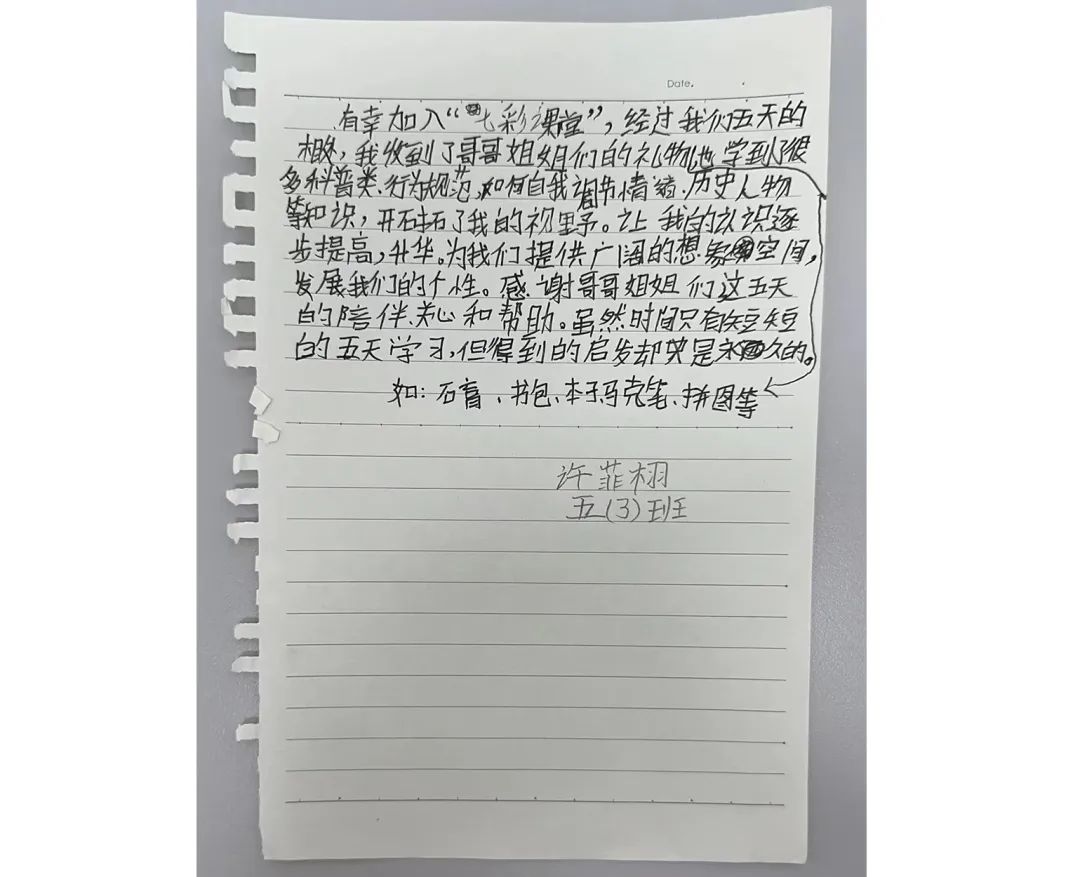 Date.
有幸加入“七彩课堂”，经过我们五天的
相处，我收到了哥哥姐姐们的礼物也学到了很
多科普类、行为规范，如何自我调节情绪、历史人物
等知识，开拓了我的视野。让我的认识逐
步提高，升华。为我们提供广阔的想象空间，
发展我们的个性。感谢哥哥姐姐们这五天
的陪伴、关心和帮助。虽然时间只有短短
的五天学习，但得到的启发却是永久的。
如：石膏、书包、本子、马克笔、拼图等
许菲栩
五(3)班